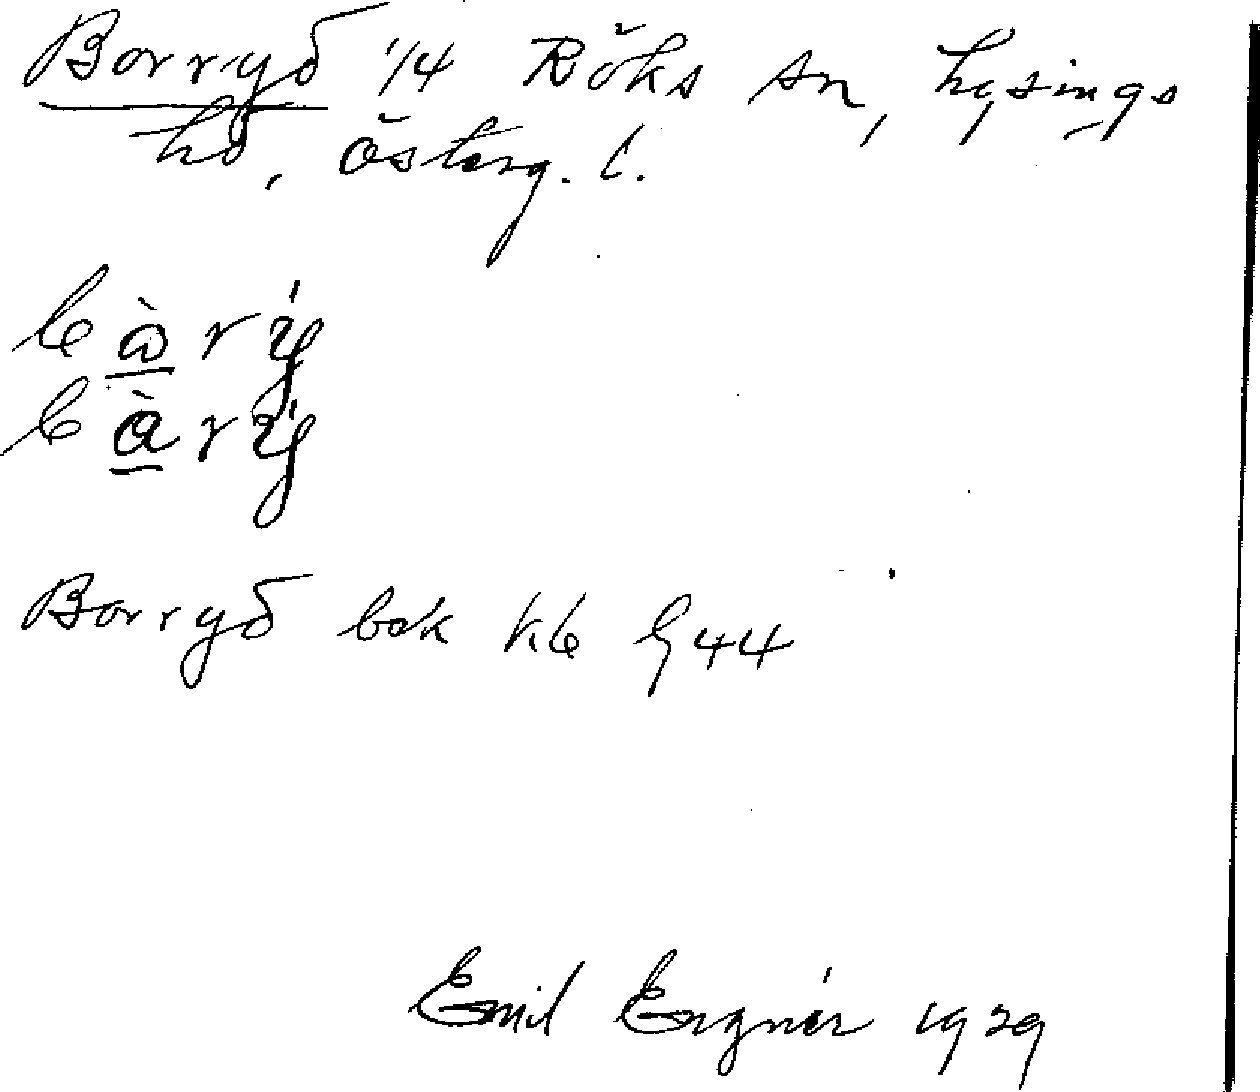 Borryd 1/4 Röks sn, Lysings
hd, Österg. l.
bàrý
bàrý
Borryd bok kb G 44
Emil Engnér 1929